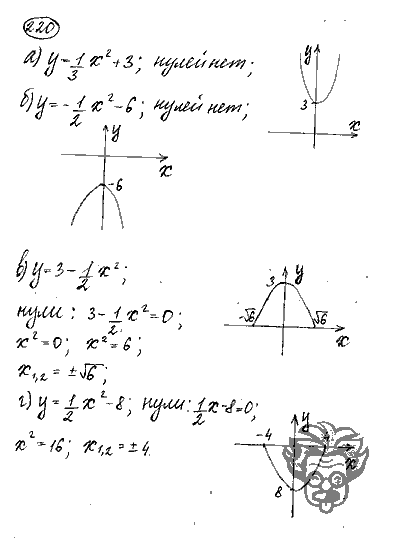 220
а) y = 1/3 x² + 3; нулей нет;
y
3
x
б) y = -1/2 x² - 6; нулей нет;
y
x
-6
в) y = 3 - 1/2 x²;
нули: 3 - 1/2 x² = 0;
x² = 0; x² = 6;
x₁,₂ = ±√6;
y
3
-√6 √6
x
г) y = 1/2 x² - 8; нули: 1/2 x - 8 = 0;
x² = 16; x₁,₂ = ±4.
y
-4 4
x
8